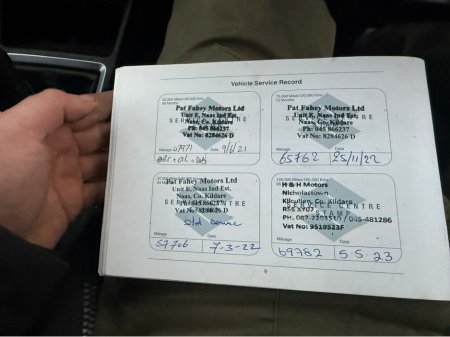 Vehicle Service Record
Pat Fahey Motors Ltd
Unit E, Naas Ind Est,
Naas, Co. Kildare
Ph: 045 866237
Vat No: 8284626 D
Mileage
Date 9/6/21
Pat Fahey Motors Ltd
Unit E, Naas Ind Est,
Naas, Co. Kildare
Ph: 045 866237
Vat No: 8284626 D
Mileage
Date
65762 25/11/22
Pat Fahey Motors Ltd
Unit E, Naas Ind Est,
Naas, Co. Kildare
SERVICE CENTRE
Vat No: 8284626 D
Mileage
Date
57706 7-3-22
H & H Motors
Nicholastown
Kilcullen, Co. Kildare
R56 XY07
SERVICE CENTRE
STAMP
045-481286
Vat No: 9519523F
Mileage
Date
69782 5 5 23
9